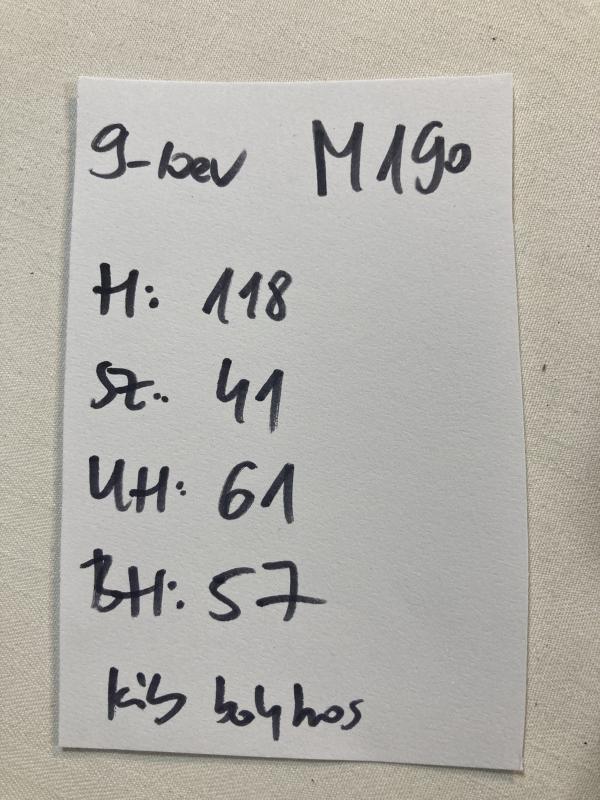 9-bev M190
H: 118
Sz: 41
UH: 61
BH: 57
kis bolyhos